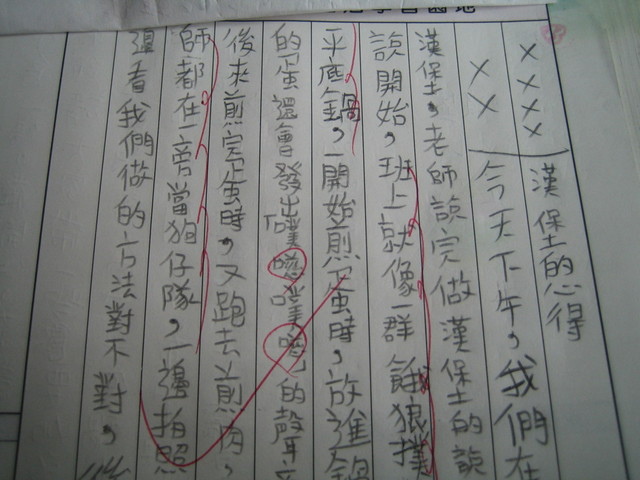 漢保的心得
××××
今天下午,我們在
××
漢保,老師說完做漢保的說
說開始,班上就像一群餓狼撲
平底鍋,一開始煎蛋時,放進鍋
的蛋還會發出「噗嗞噗嗞的聲音
後來煎完蛋時,又跑去煎肉,
師都在一旁當狗仔隊,一邊拍照
邊看我們做的方法對不對,後